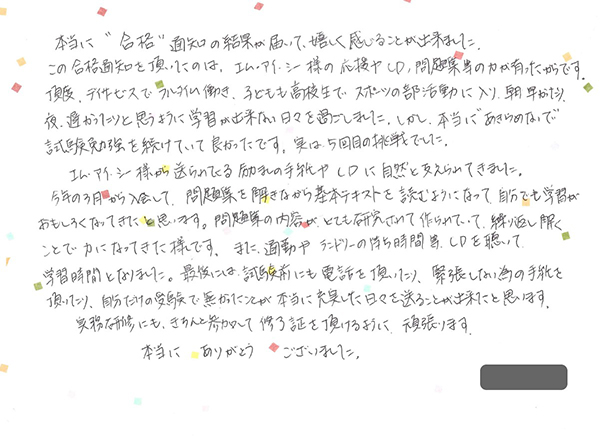 本当に “合格” 通知の結果が届いて、嬉しく感じることが出来ました。
この合格通知を頂いたのは、エム・アイ・シー様の応援やCD、問題集等の力が有ったからです。
頂度、デイサービスでフルタイム働き、子どもも高校生でスポーツの部活動に入り、朝早かったり、
夜、遅かったりと思うように学習が出来ない日々を過ごしました。しかし、本当にあきらめないで
試験勉強を続けていて良かったです。実は5回目の挑戦でした。
エム・アイ・シー様から送られてくる励ましの手紙やCDに自然と支えられてきました。
今年の3月から入会して、問題集を解きながら基本テキストを読むようになって、自分でも学習が
おもしろくなってきたと思います。問題集の内容が、とても研究されて作られていて、繰り返し解く
ことで力になってきた様です。また、通勤やランドリーの待ち時間等、CDを聴いて
学習時間となりました。最後には、試験前にも電話を頂いたり、緊張しない為の手紙を
頂いたり、自分だけの受験で無かったことが本当に充実した日々を送ることが出来たと思います。
実務研修にも、きちんと参加して修了証を頂けるように頑張ります。
本当に ありがとう ございました。